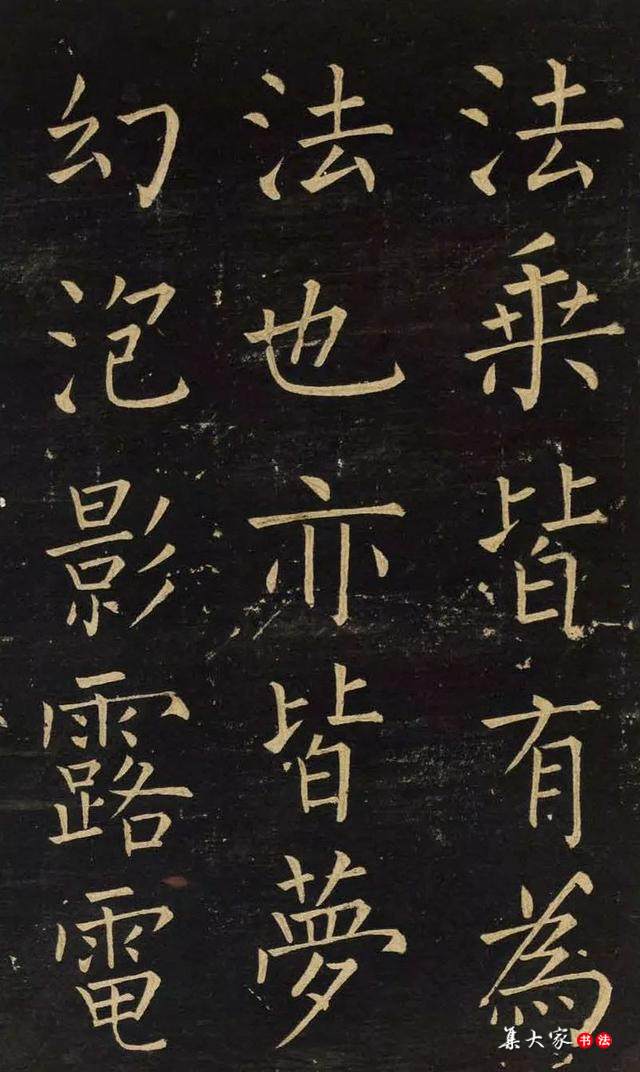 法乘皆有為
法也亦皆夢
幻泡影露電
集大家书法